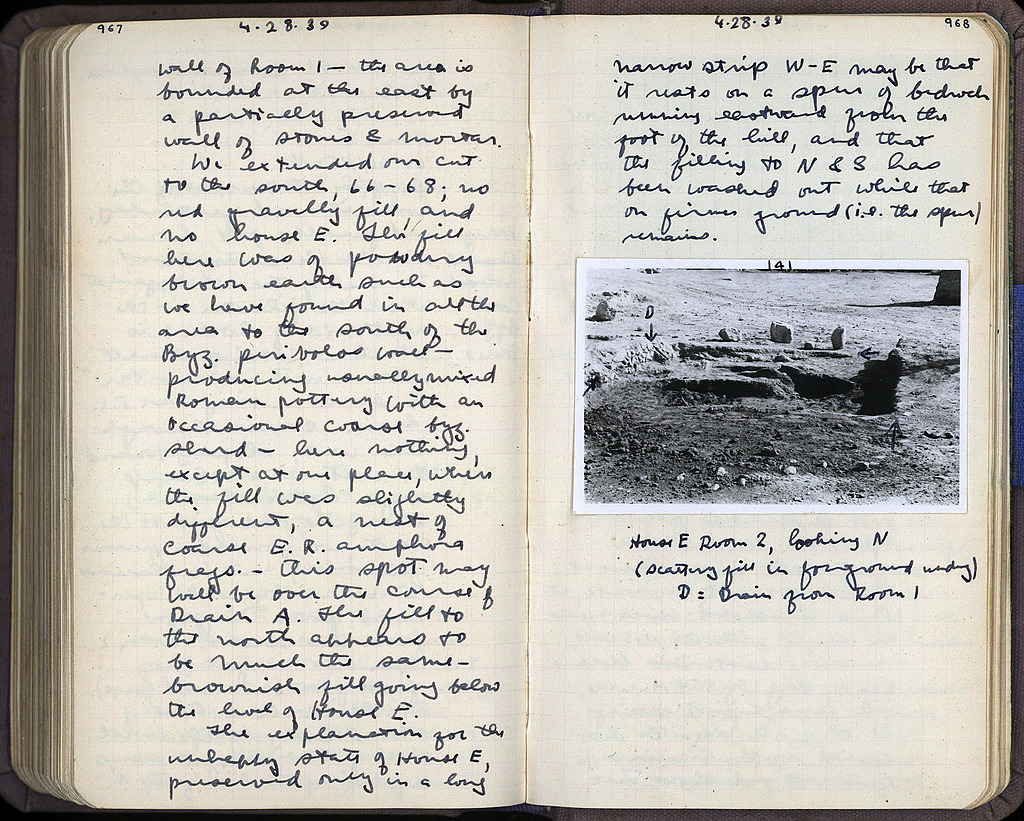 967
4.28.39
wall of Room 1 – the area is
bounded at the east by
a partially preserved
wall of stones & mortar.
We extended our cut
to the south, 66–68; no
red gravelly fill, and
no house E. The fill
here was of powdery
brown earth such as
we have found in all the
area to the south of the
Byz. peribolos wall –
producing usually mixed
Roman pottery with an
occasional coarse byz.
sherd – here nothing,
except at one place, where
the fill was slightly
different, a nest of
coarse E.R. amphora
frags. – this spot may
well be over the course of
Drain A. The fill to
the north appears to
be much the same –
brownish fill going below
the level of House E.
The explanation for the
unhappy state of House E,
preserved only in a long
4.28.39
968
narrow strip W–E may be that
it rests on a spur of bedrock
running eastward from the
foot of the hill, and that
the filling to N & S has
been washed out while that
on firmer ground (i.e. the spur)
remains.
141
D
House E Room 2, looking N
(scattery fill in foreground)
D = Drain from Room 1